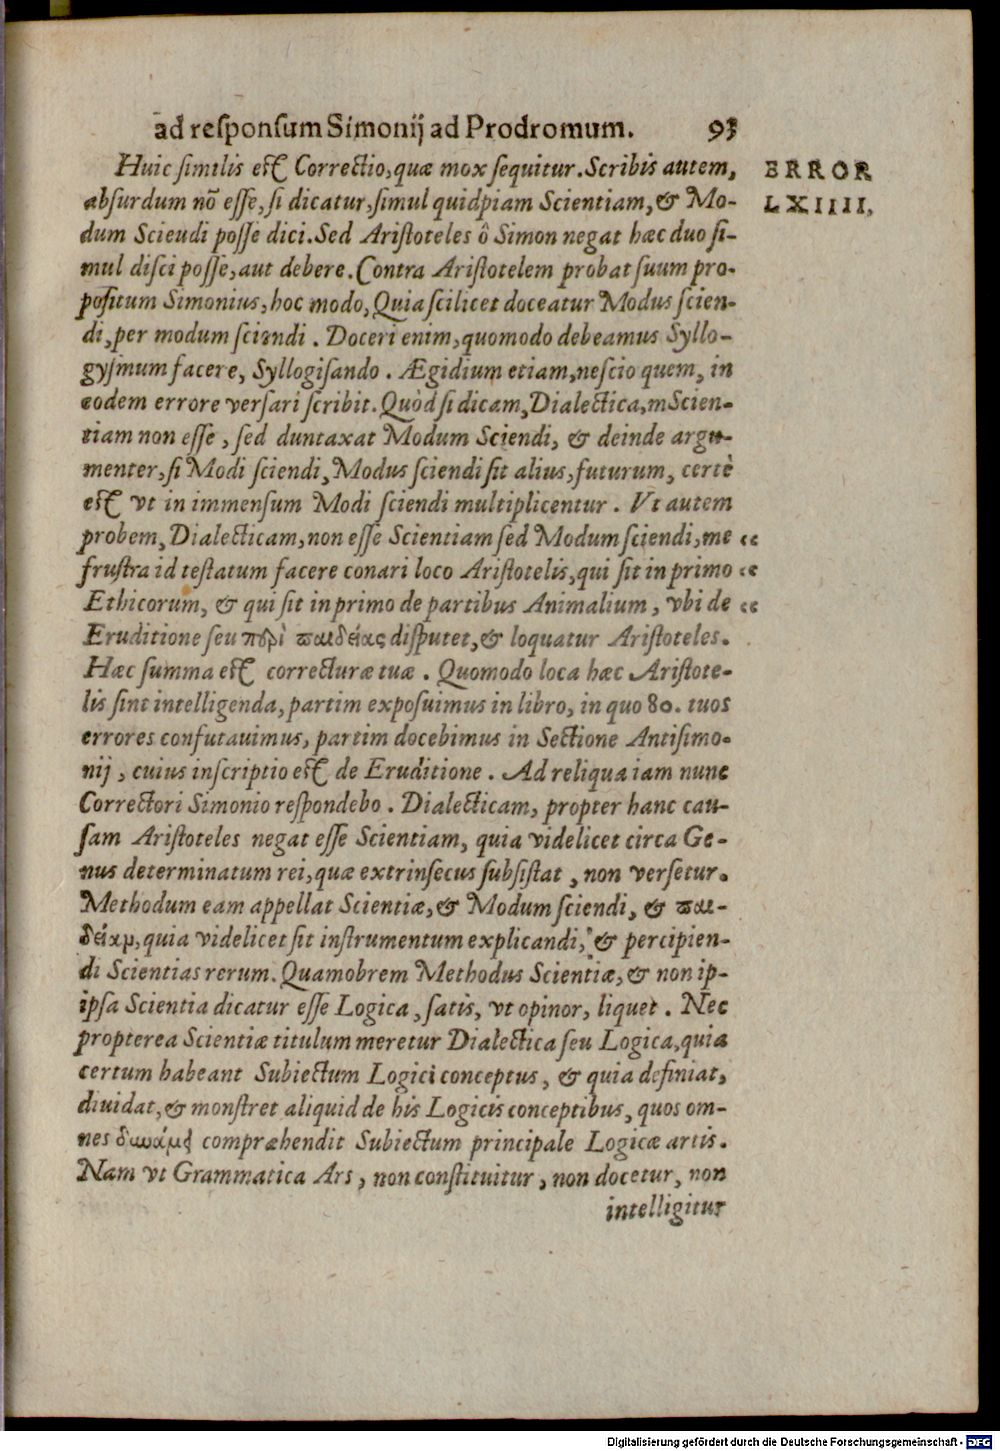 ad responsum Simonij ad Prodromum. 93
Huic similis est Correctio, quæ mox sequitur. Scribis autem,
ERROR
absurdum nō esse, si dicatur, simul quidpiam Scientiam, & Mo-
LXIIII,
dum Sciendi posse dici. Sed Aristoteles ô Simon negat hæc duo si-
mul disci posse, aut debere. Contra Aristotelem probat suum pro-
positum Simonius, hoc modo, Quia scilicet doceatur Modus scien-
di, per modum sciendi. Doceri enim, quomodo debeamus Syllo-
gysmum facere, Syllogisando. Ægidium etiam, nescio quem, in
eodem errore versari scribit. Quòd si dicam, Dialectica, m Scien-
tiam non esse, sed duntaxat Modum Sciendi, & deinde argu-
menter, si Modi sciendi, Modus sciendi sit alius, futurum, certè
est vt in immensum Modi sciendi multiplicentur. Vt autem
probem, Dialecticam, non esse Scientiam sed Modum sciendi, me “
frustra id testatum facere conari loco Aristotelis, qui sit in primo “
Ethicorum, & qui sit in primo de partibus Animalium, vbi de “
Eruditione seu πϵρὶ παιδείας disputet, & loquatur Aristoteles.
Hæc summa est correcturæ tuæ. Quomodo loca hæc Aristote-
lis sint intelligenda, partim exposuimus in libro, in quo 80. tuos
errores confutauimus, partim docebimus in Sectione Antisimo-
nij, cuius inscriptio est de Eruditione. Ad reliqua iam nunc
Correctori Simonio respondebo. Dialecticam, propter hanc cau-
sam Aristoteles negat esse Scientiam, quia videlicet circa Ge-
nus determinatum rei, quæ extrinsecus subsistat, non versetur.
Methodum eam appellat Scientiæ, & Modum sciendi, & παι-
δείαμ, quia videlicet sit instrumentum explicandi, & percipien-
di Scientias rerum. Quamobrem Methodus Scientiæ, & non ip-
ipsa Scientia dicatur esse Logica, satis, vt opinor, liquet. Nec
propterea Scientiæ titulum meretur Dialectica seu Logica, quia
certum habeant Subiectum Logici conceptus, & quia definiat,
diuidat, & monstret aliquid de his Logicis conceptibus, quos om-
nes δυνάμϵι compræhendit Subiectum principale Logicæ artis.
Nam vt Grammatica Ars, non constituitur, non docetur, non
intelligitur
Digitalisierung gefördert durch die Deutsche Forschungsgemeinschaft - DFG